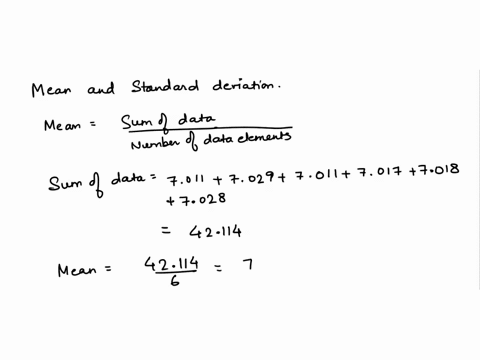 Mean and Standard deviation.
Mean = Sum of data
Number of data elements
Sum of data = 7.011 + 7.029 + 7.011 + 7.017 + 7.018
+ 7.028
= 42.114
Mean = 42.114 = 7
6